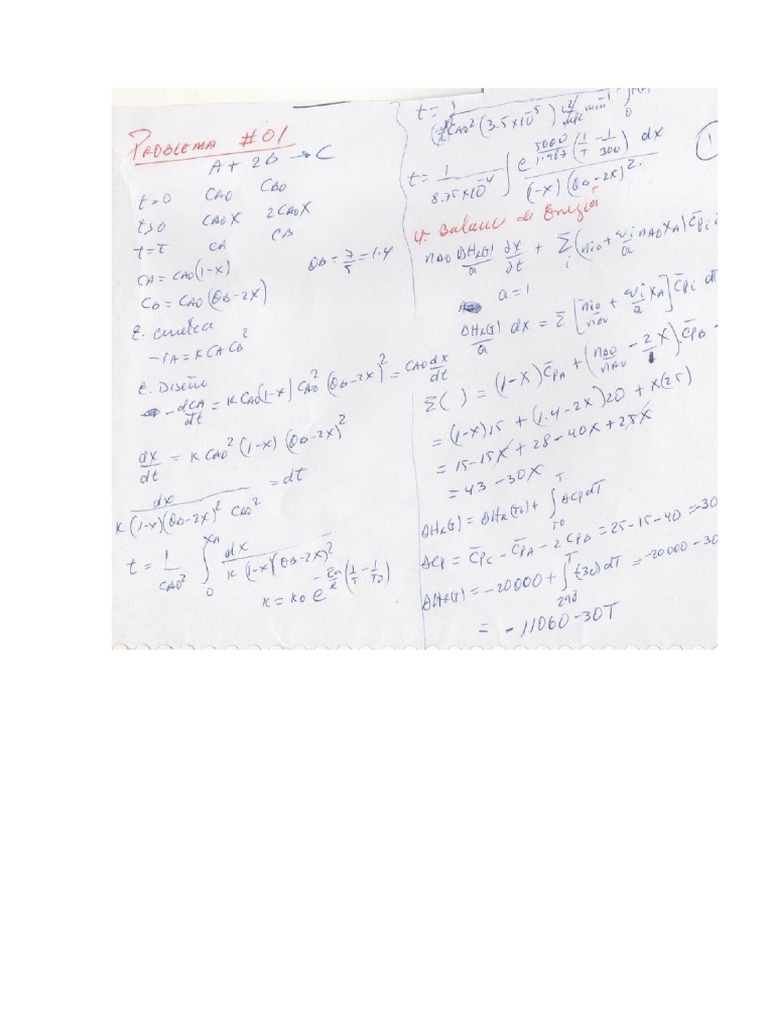 PROBLEMA #01
A + 2B → C
t=0 CAO CBO
t>0 CAOX 2CAOX
t=T CA CB
CA = CAO(1-X)
θB = 7/5 = 1.4
CB = CAO(θB-2X)
E. cinética
-rA = K CA CB²
E. Diseño
-dCA/dt = K CAO(1-X) CAO²(θB-2X)² = CAO dX/dt
dX/dt = K CAO²(1-X)(θB-2X)²
dX / K(1-X)(θB-2X)² CAO² = dt
t = 1/CAO² ∫₀^XA dX / K(1-X)(θB-2X)²
K = K0 e^(-Ea/R (1/T - 1/T0))
t = 1 / CAO²(3.5x10⁻⁵) min⁻¹
t = 1/8.75x10⁻⁴ ∫ e^(5000/1.987 (1/T - 1/300)) dx / (1-X)(θB-2X)²
1
4. Balance de Energía
nAO ΔHR(G)/a ∂X/∂t + Σi (niO + νi/a nAO XA) C̄Pi
a = 1
ΔHR(G)/a dX = Σ [niO/nAO + νi/a XA] C̄Pi dT
Σ( ) = (1-X) C̄PA + (nBO/nAO - 2/1 X) C̄PB
= (1-X)15 + (1.4-2X)20 + X(25)
= 15-15X + 28-40X + 25X
= 43-30X
ΔHR(G) = ΔHR(T0) + ∫T0^T ΔCP dT
ΔCP = C̄PC - C̄PA - 2C̄PB = 25-15-40 = -30
ΔHR(G) = -20000 + ∫298^T (-30) dT = -20000-30
= -11060-30T